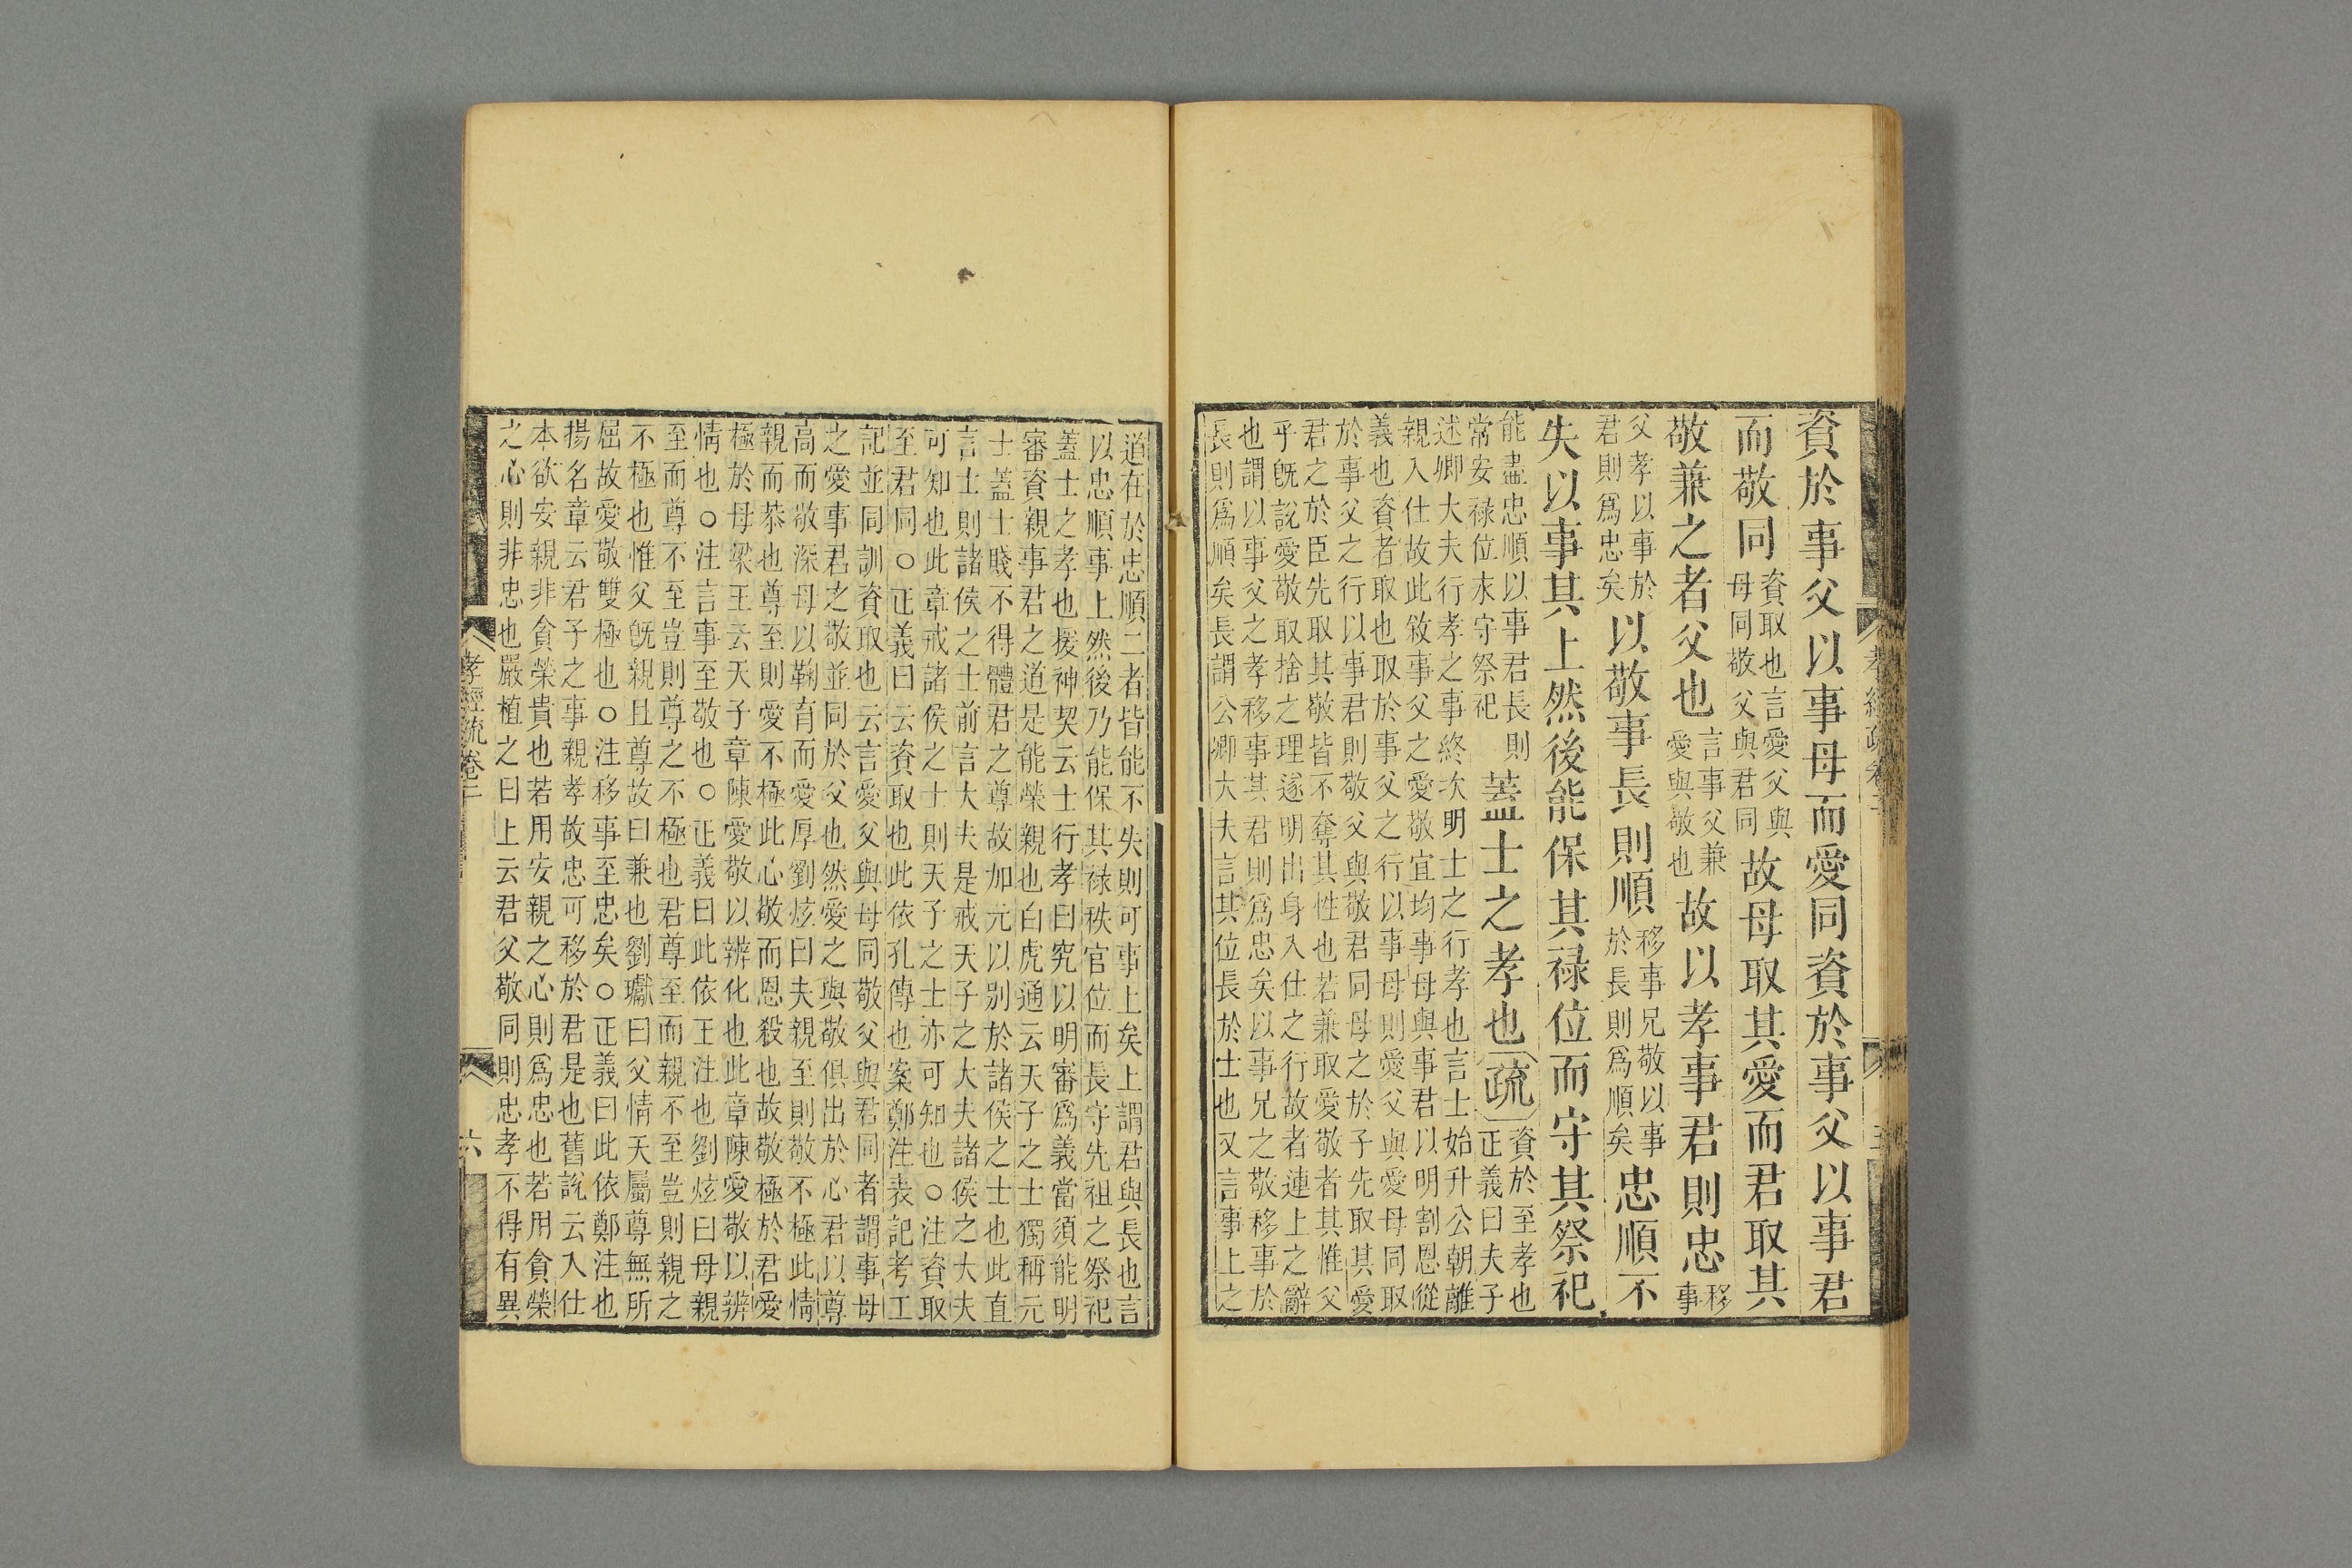 資於事父以事母而愛同資於事父以事君
而敬同資取也言愛父與母同敬父與君同故母取其愛而君取其
敬兼之者父也言事父兼愛與敬也故以孝事君則忠移事
父孝以事於君則爲忠矣以敬事長則順移事兄敬以事於長則爲順矣忠順不
失以事其上然後能保其祿位而守其祭祀
能盡忠順以事君長則常安祿位永守祭祀蓋士之孝也疏資於至孝也正義曰夫子
述卿大夫行孝之事終次明士之行孝也言士始升公朝離
親入仕故此敘事父之愛敬宜均事母與事君以明割恩從
義也資者取也取於事父之行以事母則愛父與愛母同取
於事父之行以事君則敬父與敬君同母之於子先取其愛
君之於臣先取其敬皆不奪其性也若兼取愛敬者其惟父
乎旣說愛敬取捨之理遂明出身入仕之行故者連上之辭
也謂以事父之孝移事其君則爲忠矣以事兄之敬移事於
長則爲順矣長謂公卿大夫言其位長於士也又言事上之
孝經疏卷二
道在於忠順二者皆能不失則可事上矣上謂君與長也言
以忠順事上然後乃能保其祿秩官位而長守先祖之祭祀
蓋士之孝也援神契云士行孝曰究以明審爲義當須能明
審資親事君之道是能榮親也白虎通云天子之士獨稱元
士蓋士賤不得體君之尊故加元以别於諸侯之士也此直
言士則諸侯之士前言大夫是戒天子之大夫諸侯之大夫
可知也此章戒諸侯之士則天子之士亦可知也○注資取
至君同○正義曰云資取也此依孔傳也案鄭注表記考工
記並同訓資取也云言愛父與母同敬父與君同者謂事母
之愛事君之敬並同於父也然愛之與敬俱出於心君以尊
高而敬深母以鞠育而愛厚劉炫曰夫親至則敬不極此情
親而恭也尊至則愛不極此心敬而恩殺也故敬極於君愛
極於母梁王云天子章陳愛敬以辨化也此章陳愛敬以辨
情也○注言事至敬也○正義曰此依王注也劉炫曰母親
至而尊不至豈則尊之不極也君尊至而親不至豈則親之
不極也惟父旣親且尊故曰兼也劉瓛曰父情天屬尊無所
屈故愛敬雙極也○注移事至忠矣○正義曰此依鄭注也
揚名章云君子之事親孝故忠可移於君是也舊說云入仕
本欲安親非貪榮貴也若用安親之心則爲忠也若用貪榮
之心則非忠也嚴植之曰上云君父敬同則忠孝不得有異
孝經疏卷二
六